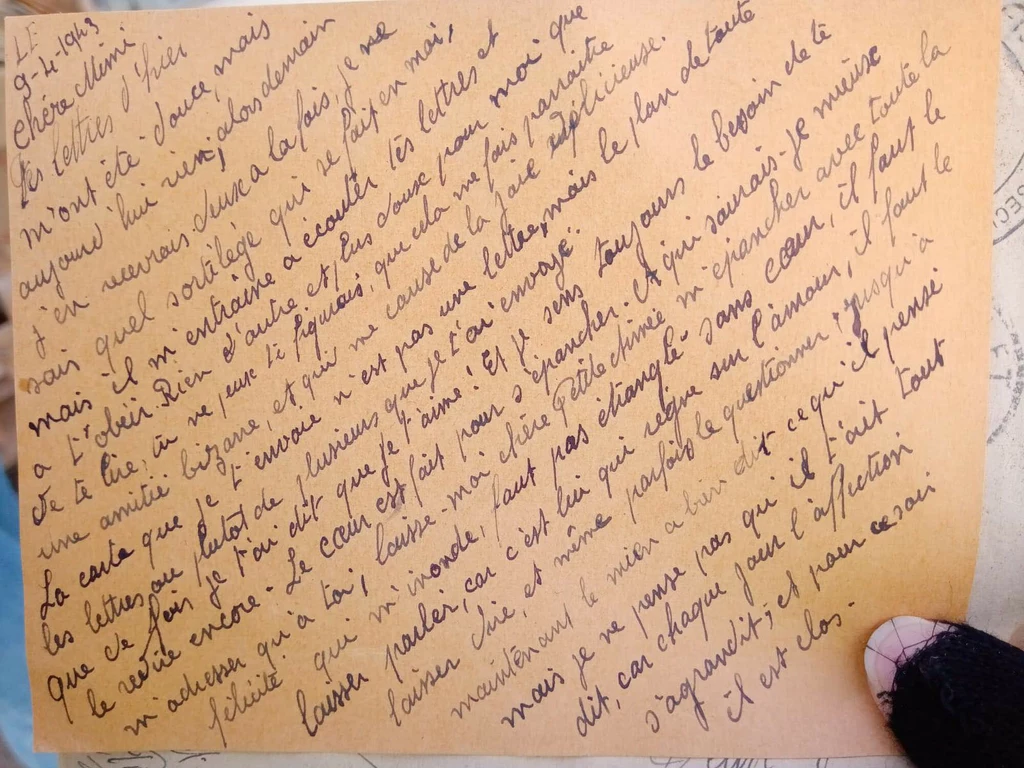 LE
9-4-1943
Chère Mimi
Tes lettres d'hier
m'ont été douce, mais
aujourd'hui rien, alors demain
j'en recevrais deux a la fois, je ne
sais quel sortilège qui se fait en moi,
mais il m'entraine a écouter tes lettres et
a t'obéir. Rien d'autre est plus doux pour moi que
de te lire, tu ne peux te figurais, que cela me fais paraitre
une amitié bizarre, et qui me cause de la joie délicieuse.
La carte que je t'envoie n'est pas une lettre, mais le plan de toute
les lettres ou plutot de plusieurs que je t'ai envoyé.
Que de fois je t'ai dit que je t'aime! Et je sens toujours le besoin de te
le redire encore. Le cœur est fait pour s'épancher. A qui saurais-je mieux
m'adresser qu'à toi, laisse-moi chère Petite chérie m'épancher avec toute la
félicité qui m'inonde, faut pas étrangle sans cœur, il faut le
laisser parler, car c'est lui qui règne sur l'amour, il faut le
laisser dire, et même parfois le questionner, jusqu'à
maintenant le mien a bien dit ce qu'il pense
mais je ne pense pas qu'il t'ait tout
dit, car chaque jour l'affection
s'agrandit; et pour ce soir
il est clos.